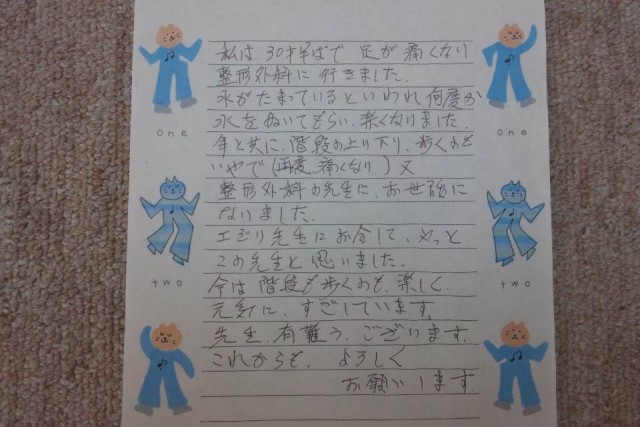 私は、30才半ばで 足が痛くなり
整形外科に行きました。
水がたまっているといわれ何度か
水をぬいてもらい、楽になりました。
年と共に、階段の上り下り、歩くのも
いやで(再度、痛くなり)又
整形外科の先生に、お世話に
なりました。
エビリ先生にお会して、やっと
この先生と思いました。
今は階段も歩くのも、楽しく
元気に、すごしています。
先生、有難う、ございます。
これからも、よろしく
お願いします
one
one
two
two